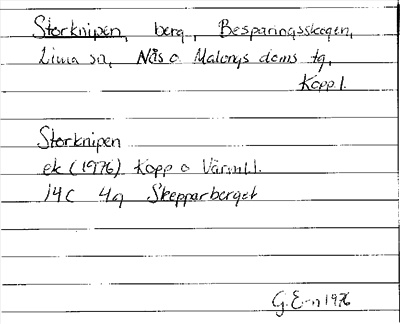 Storknipen, berg, Besparingsskogen,
Lima sn, Nås o Malungs doms tg,
Kopp l.
Storknipen
ek (1976) Kopp o Värml.l.
14C 4g Skepparberget
G. E-n 1976